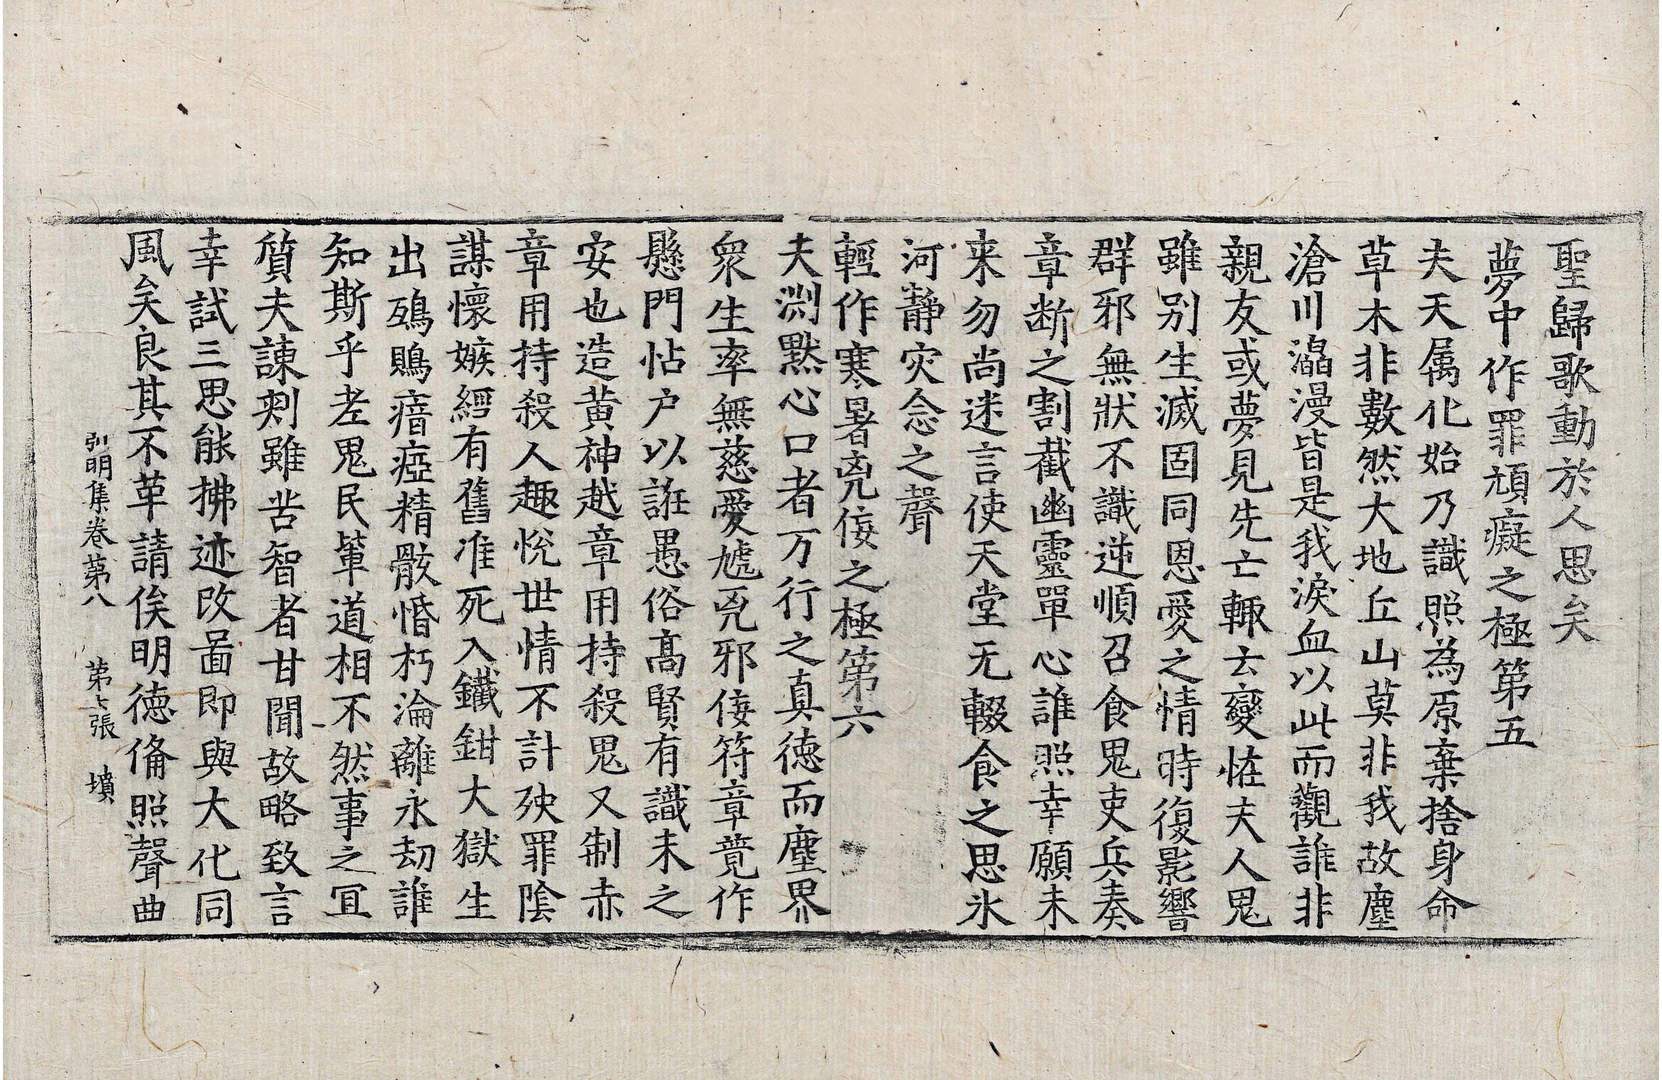 聖歸歌動於人思矣
夢中作罪頑癡之極第五
夫天属化始乃識照為原棄捨身命
草木非數然大地丘山莫非我故塵
滄川㶑漫皆是我淚血以此而觀誰非
親友或夢見先亡輙云變恠夫人鬼
雖别生滅固同恩愛之情時復影響
群邪無狀不識逆順召食鬼吏兵奏
章断之割截幽靈單心誰照幸願未
来勿尚迷言使天堂无輟食之思氷
河静灾念之聲
輕作寒暑凶佞之極第六
夫渊黙心口者万行之真德而塵界
衆生率無慈愛虓凶邪佞符章竟作
懸門帖户以誑愚俗髙賢有識未之
安也造黄神越章用持殺鬼又制赤
章用持殺人趣悅世情不計殃罪陰
謀懷嫉經有舊准死入鐵鉗大獄生
出鵄鵰瘖瘂精骸惛朽淪離永劫誰
知斯乎老鬼民軰道相不然事之宜
質夫諫刾雖苦智者甘聞故略致言
幸試三思能拂迹改啚即與大化同
風矣良其不革請俟明德俻照聲曲
弘明集卷第八 第七張 墳